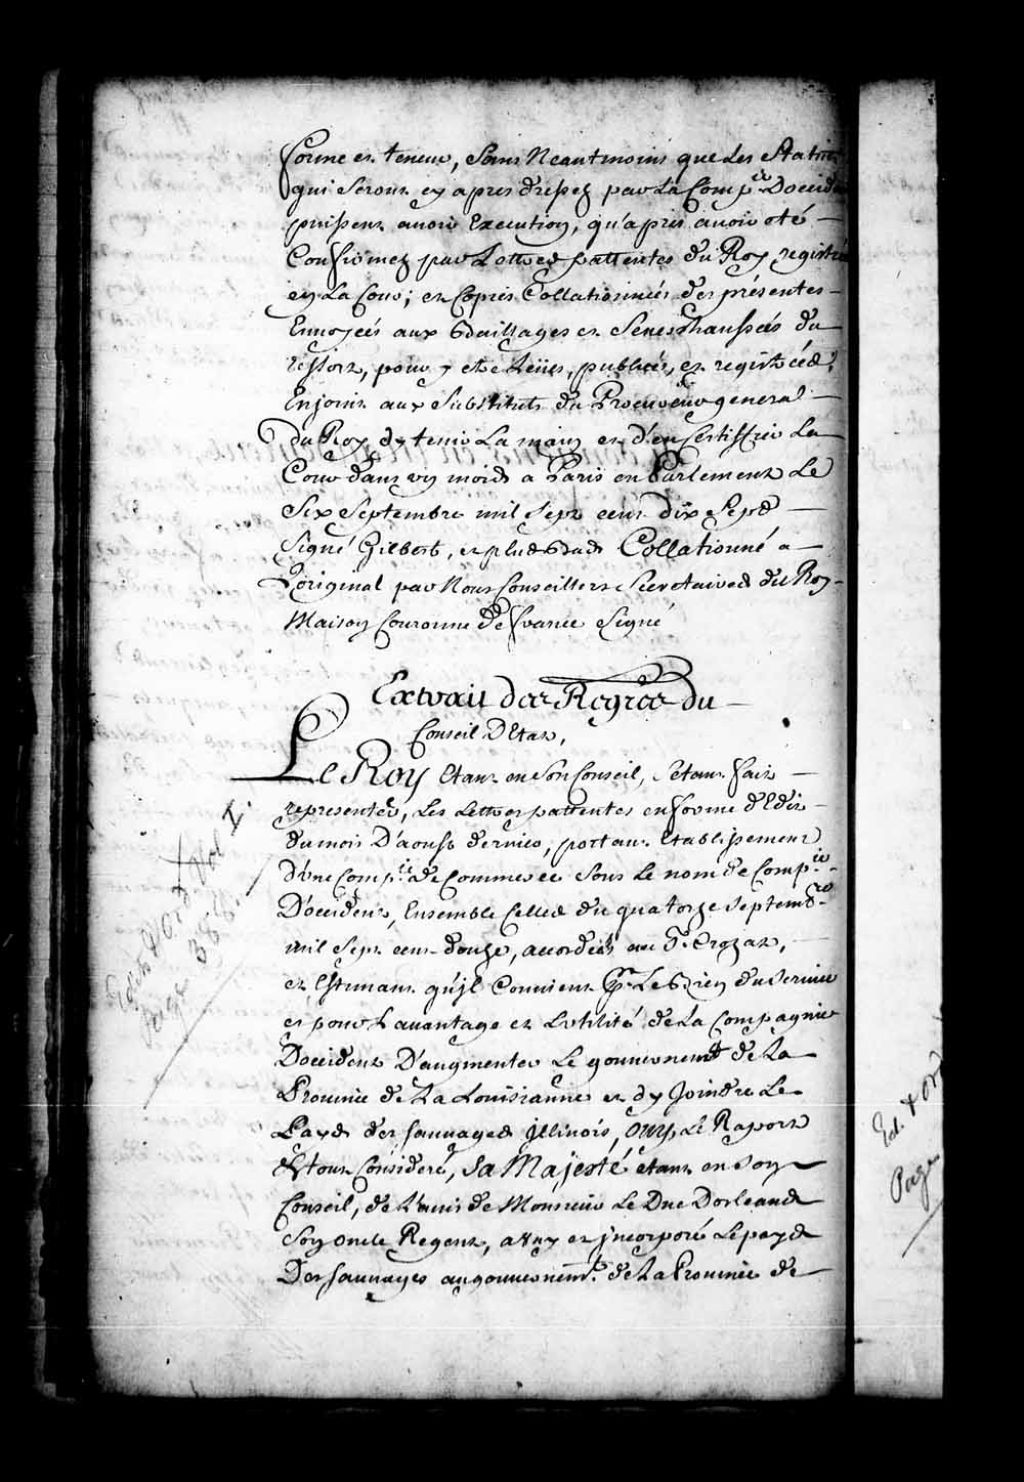 forme et teneur, sans neantmoins que les Statuts
qui seront cy apres dressez par la Comp.ie Doccident
puissent avoir Execution, qu'apres avoir oté
Confirmez par Lettres pattentes du Roy registrées
en la Cour; et Copies Collationnées des présentes
Envoyées aux Baillages et Senechaussées du
ressort, pour y etre Leües, publiées, et registrées,
Enjoint aux Substituts du Procureur general
du Roy dy tenir La main et d'en Certiffier La
Cour dans un mois a Paris en Parlement Le
Six Septembre mil sept cent dix sept
Signé Gilbert, et plus bas Collationné a
L'original par Nous Conseillers Secretaires du Roy
Maison Couronne de france Signé
Extrait des Regres du
Conseil D'Etat,
Le Roy Etant en son Conseil, s'etant fait
representer, Les Lettres pattentes en forme d'Edit
du mois D'aoust dernier, portant Etablissement
d'une Comp.ie de Commerce sous le nom de Comp.ie
D'occident, Ensemble Celles du quatorze Septemb.re
mil sept cent douze, accordées au S. Crozat,
et Estimant qu'jl Convient Pr Le Bien du service
et pour L'avantage et L'utilité de La Compagnie
Doccident D'augmenter Le gouvernem.t de La
Province de La Louisianne et dy Joindre Le
Pays des sauvages jllinois, ouy Le Raport
Et tout Consideré, sa Majesté etant en son
Conseil, de L'avis de Monsieur Le Duc Dorleans
Son oncle Regent, a uny et jncorporé Le pays
Des sauvages au gouvernem.t de La Province de
Edits & Ord. Vol I.
page 388.
Ed. & Ord
Page